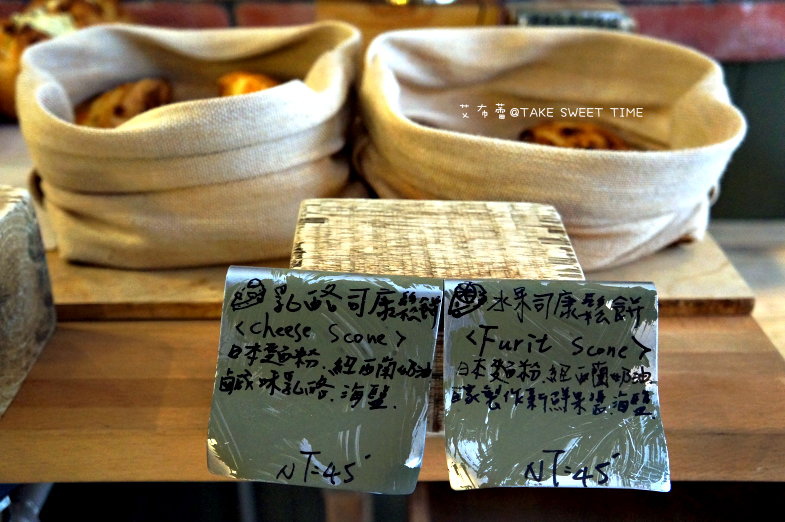 艾布蕾@TAKE SWEET TIME
乳酪司康鬆餅
<Cheese Scone>
日本麵粉.紐西蘭奶油
鹹味乳酪.海鹽.
NT=45
水果司康鬆餅
<Furit Scone>
日本麵粉.紐西蘭奶油
自家製作新鮮果醬.海鹽.
NT=45